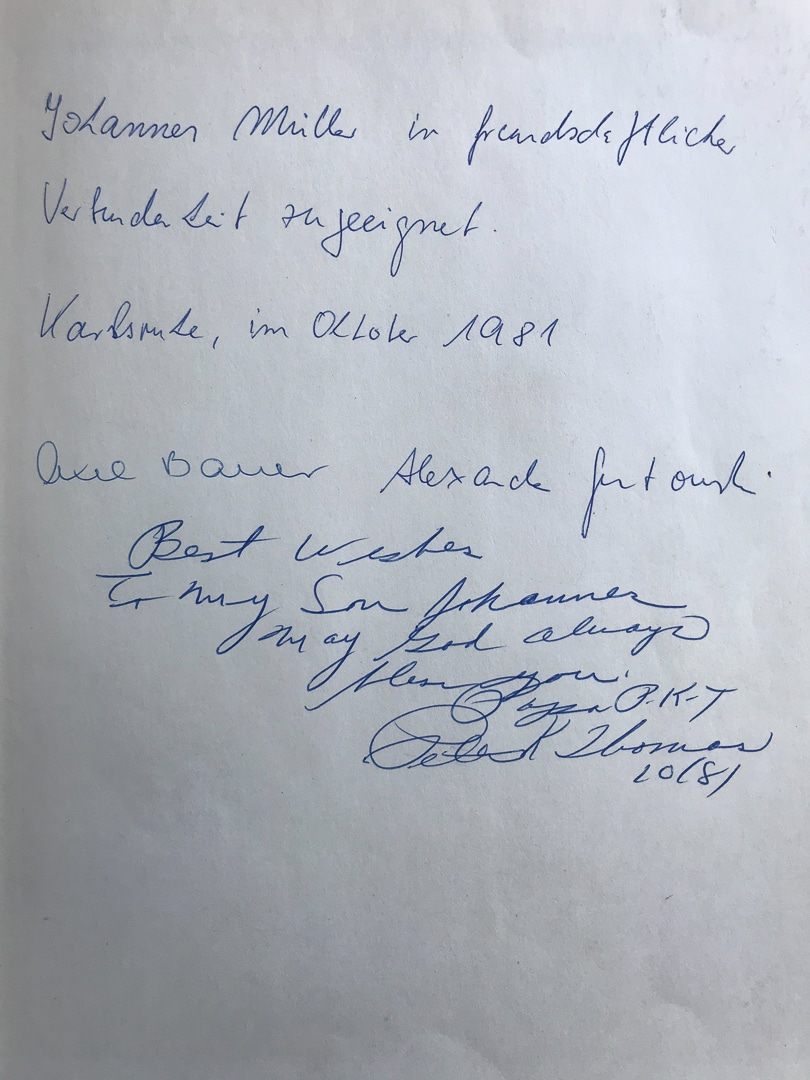 Johannes Müller in freundschaftlicher
Verbundenheit zugeeignet.
Karlsruhe, im Oktober 1981
Axel Bauer Alexander
Best Wishes
To my Son Johannes
may God always
bless you.
Papa P-K-T
Peter K Thomas
10/81